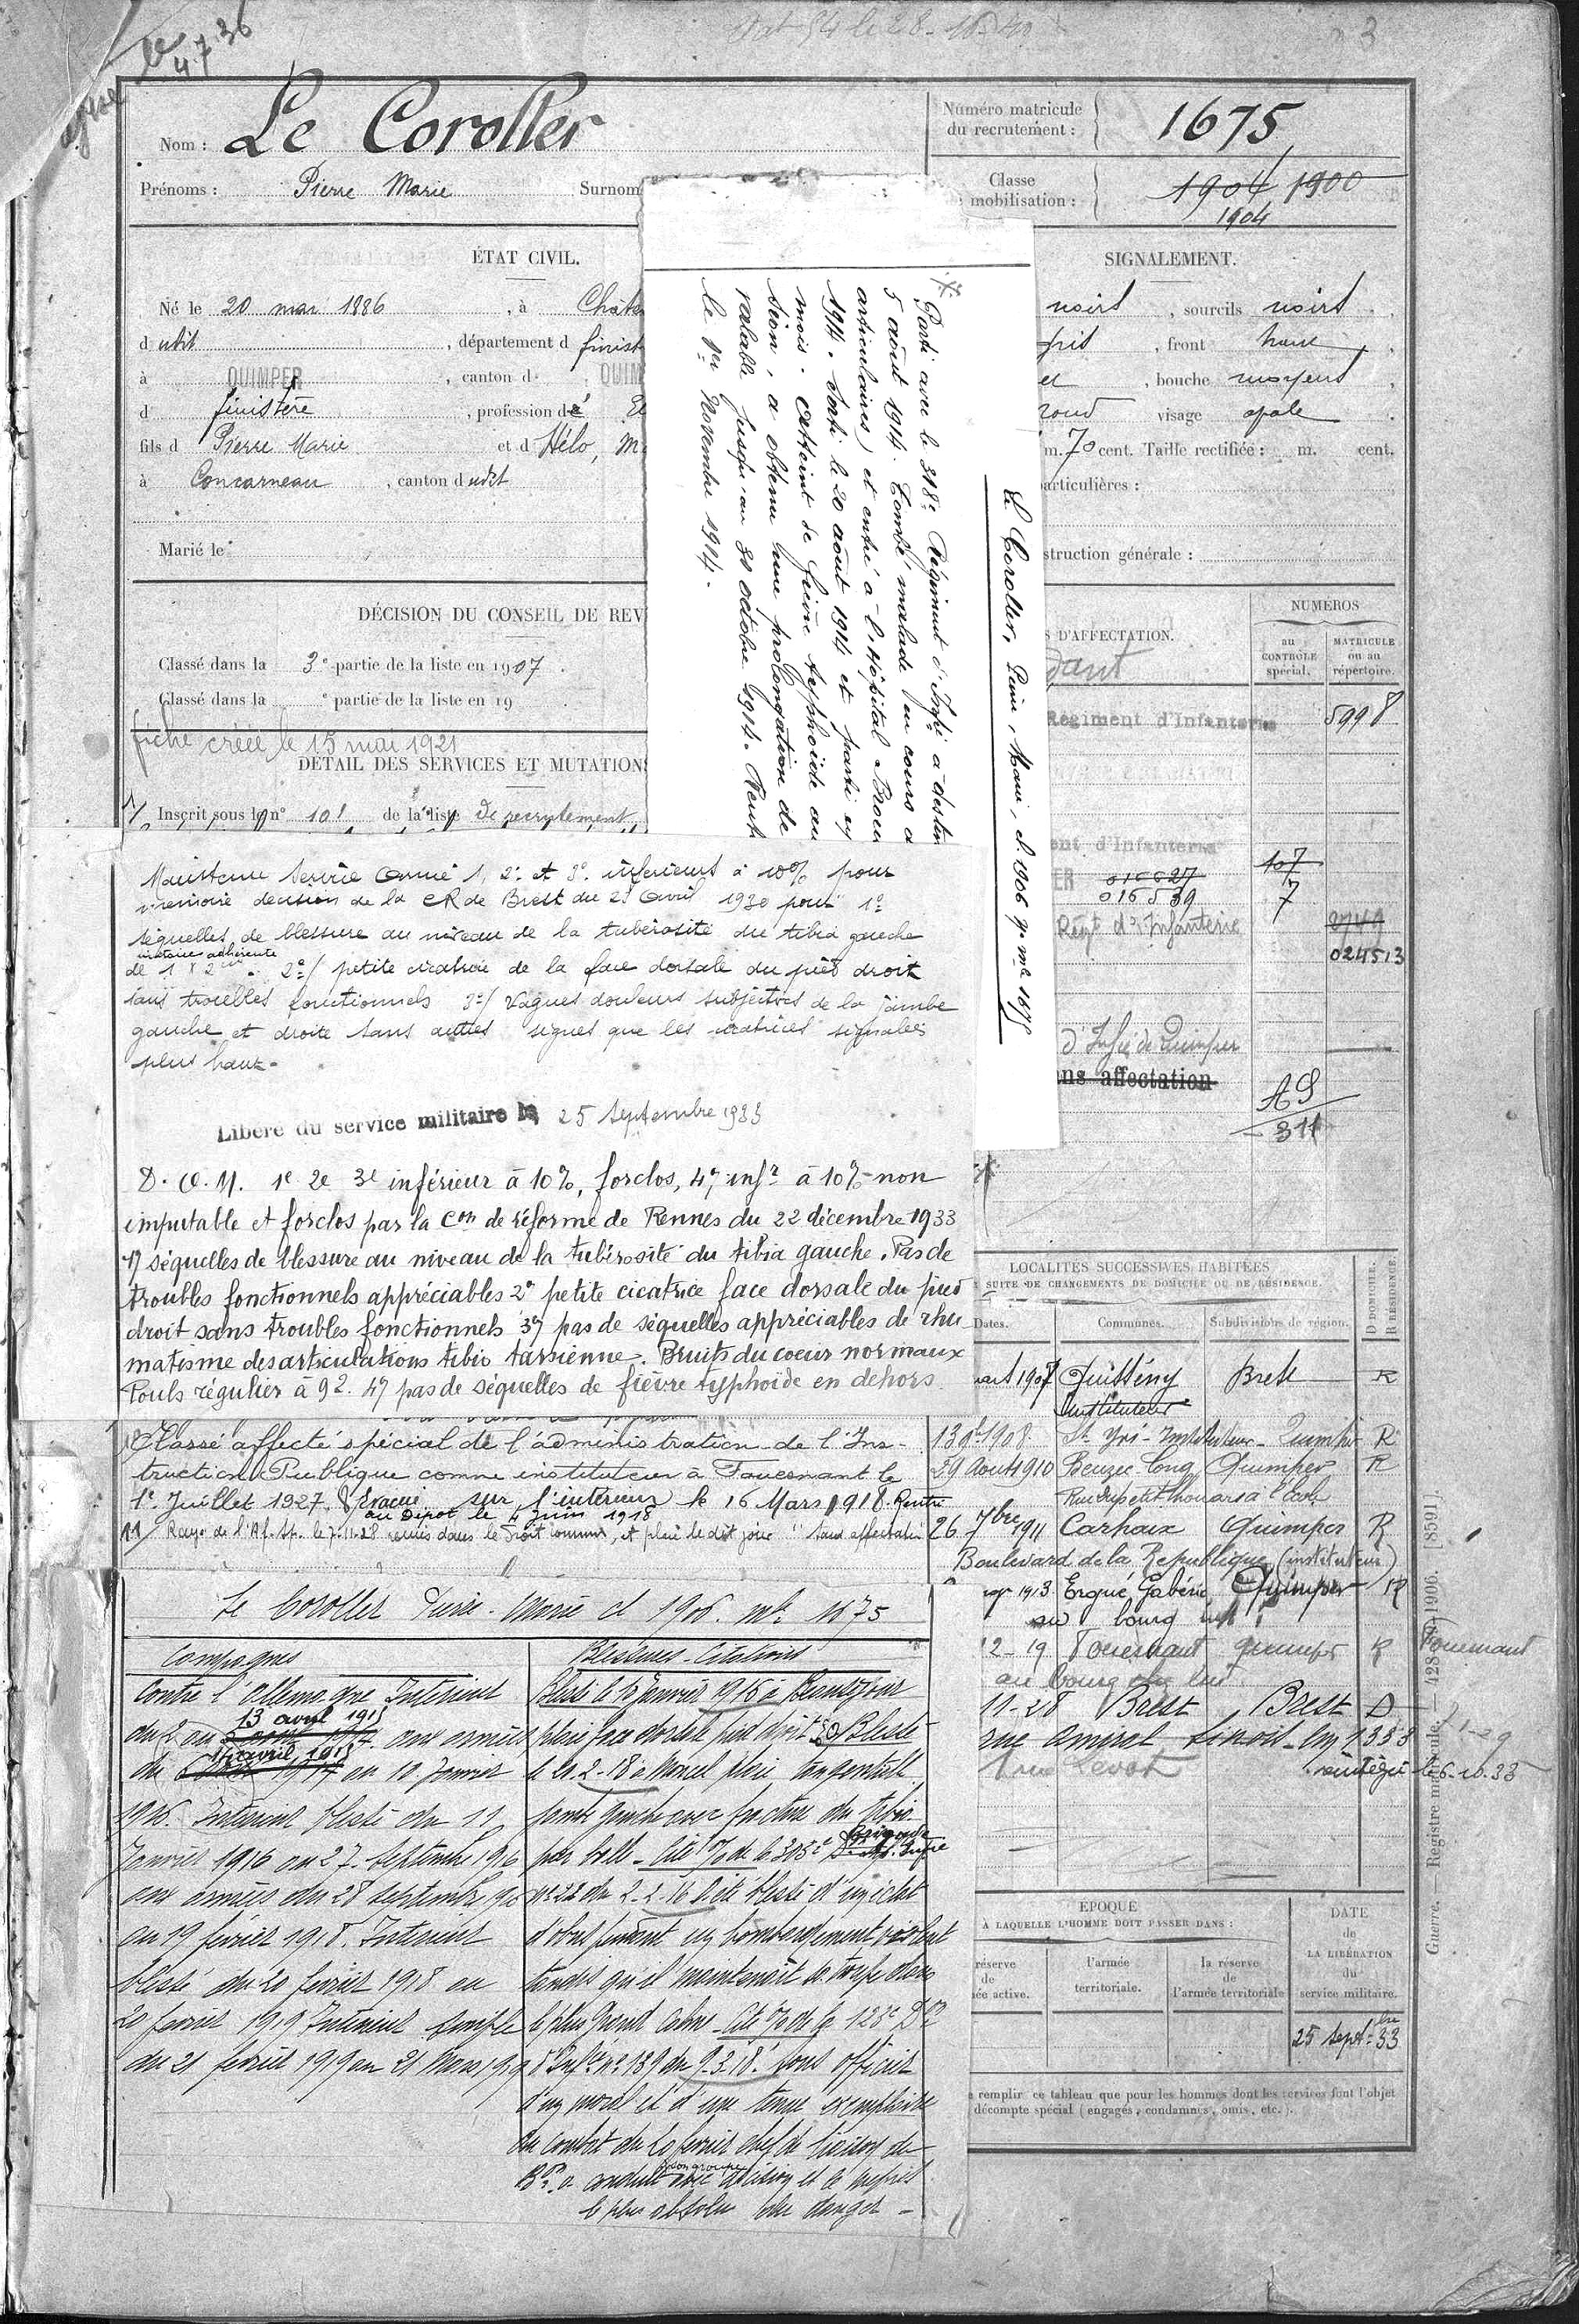 4.7.36
3
Nom : Le Coroller
Numéro matricule
du recrutement :
1675
Prénoms : Pierre Marie Surnom
Classe
mobilisation :
1904 1900
1904
ÉTAT CIVIL.
Né le 20 mai 1886, à Chate
d udit, département d finist
à QUIMPER, canton d QUIM
d finistère, profession d
fils d Pierre Marie et d Hélo, M
à Concarneau, canton d udit
Marié le
DÉCISION DU CONSEIL DE REV
Classé dans la 3e partie de la liste en 1907.
Classé dans la e partie de la liste en 19
fiche créée le 15 mai 1921
DÉTAIL DES SERVICES ET MUTATIONS
Inscrit sous le n° 101 de la liste de recrutement
Parti avec le 318e Régiment d'Infie à destin
5 août 1914. Tombé malade (en cours d
articulaires) et entré à l'Hôpital
1914. Sorti le 20 août 1914 et parti en
mois. Atteint de fièvre typhoïde au
sion, a obtenu une prolongation de
valable jusqu'au 31 octobre 1914. Rent
le 1er Novembre 1914.
Le Coroller, Pierre, Marie, cl. 1906 n° mle 1675
SIGNALEMENT.
noirs, sourcils noirs
gris, front haut
, bouche moyenne
rond visage ovale
m. 70 cent. Taille rectifiée : m. cent.
articulières :
struction générale :
NUMÉROS
S D'AFFECTATION.
au
CONTRÔLE
spécial.
MATRICULE
ou au
répertoire.
dant
Régiment d'Infanterie 5998
ent d'Infanterie 107
ER 016627
016539 7
Régt d'Infanterie
024513
d'Infie de Quimper
ans affectation
AS
311
Maintenu service armé 1, 2° et 3° inférieurs à 10% pour
mémoire décision de la CR de Brest du 25 Avril 1930 pour 1°
séquelles de blessure au niveau de la tubérosité du tibia gauche
cicatrice adhérente
de 1 x 2 cm. 2°/ petite cicatrice de la face dorsale du pied droit
sans troubles fonctionnels 3°/ Vagues douleurs subjectives de la jambe
gauche et droite sans autres signes que les cicatrices signalées
plus haut.
Libéré du service militaire le 25 septembre 1933
1e 2e 3e inférieur à 10%, forclos, 4°, infr à 10% non
imputable et forclos par la Con de réforme de Rennes du 22 décembre 1933
1°) séquelles de blessure au niveau de la tubérosité du tibia gauche. Pas de
troubles fonctionnels appréciables 2° petite cicatrice face dorsale du pied
droit sans troubles fonctionnels 3°) pas de séquelles appréciables de rhu
matisme des articulations tibio tarsienne. Bruits du coeur normaux
Pouls régulier à 92. 4°) pas de séquelles de fièvre typhoïde en dehors
Classé affecté spécial de l'administration de l'Ins-
truction Publique comme instituteur à Fouesnant le
1e Juillet 1927. Evacué sur l'intérieur le 16 Mars 1918. Rentré
au Dépot le 4 Juin 1918
11/ Rayé de l'Af. Sp. le 7.11.28 remis dans le Droit commun, et placé le dit jour "Sans affectation"
LOCALITÉS SUCCESSIVES HABITÉES
SUITE DE CHANGEMENTS DE DOMICILE OU DE RÉSIDENCE.
Dates. Communes. Subdivisions de région. D DOMICILE. R RÉSIDENCE.
1907 Guissény Brest R
Instituteur
1908 St Yvi - Instituteur - Quimper R
29 Août 1910 Beuzec Conq Quimper R
Rue Dupetit Thouars à l'école
26 7bre 1911 Carhaix Quimper R
Boulevard de la République (instituteur)
1913 Ergué Gabéric Quimper R
au bourg
2-19 Fouesnant Quimper R Fouesnant
au bourg
11-28 Brest Brest D
rue Amiral Linois
réintégré le 6.10.33
Le Coroller Pierre. Marie cl 1906. mle 1675
Campagnes
Contre l'Allemagne Intérieur
13 avril 1915
du 2 au 2 août 1914 aux armées
14 avril 1915
du au 10 Janvier
1916. Intérieur blessé du 11
Janvier 1916 au 27. Septembre 1916
aux armées du 28 septembre 1916
au 19 février 1918. Intérieur
blessé du 20 février 1918 au
20 février 1919 Intérieur simple
du 21 février 1919 au 21 Mars 1919
Blessures - Citations
Blessé le 10 Janvier 1916 à Beauséjour
plaie face dorsale pied droit 2°) Blessé
le 20.2.18 à Moncel plaie tangentielle
jambe gauche avec fracture du tibia
par balle - Cité à l'o/ de la 305e Brigade d'Infie
n° 22 du 2-2-16 A été blessé d'un éclat
d'obus pendant un bombardement violent
tandis qu'il maintenait sa troupe dans
le plus grand calme - Cité à l'o/ de la 123e Don
d'Infie n° 139 du 9.3.18. Sous officier
d'un moral et d'une tenue exemplaire
au combat du 20 février chef de liaison du
Bon a conduit son groupe avec décision et le mépris
le plus absolu du danger -
ÉPOQUE
À LAQUELLE L'HOMME DOIT PASSER DANS :
réserve
de
ée active.
l'armée
territoriale.
la réserve
de
l'armée territoriale
DATE
de
LA LIBÉRATION
du
service militaire.
25 septbre 33
remplir ce tableau que pour les hommes dont les services font l'objet
décompte spécial (engagés, condamnés, omis, etc.).
Guerre. — Registre matricule. — 428 1906. [8591].